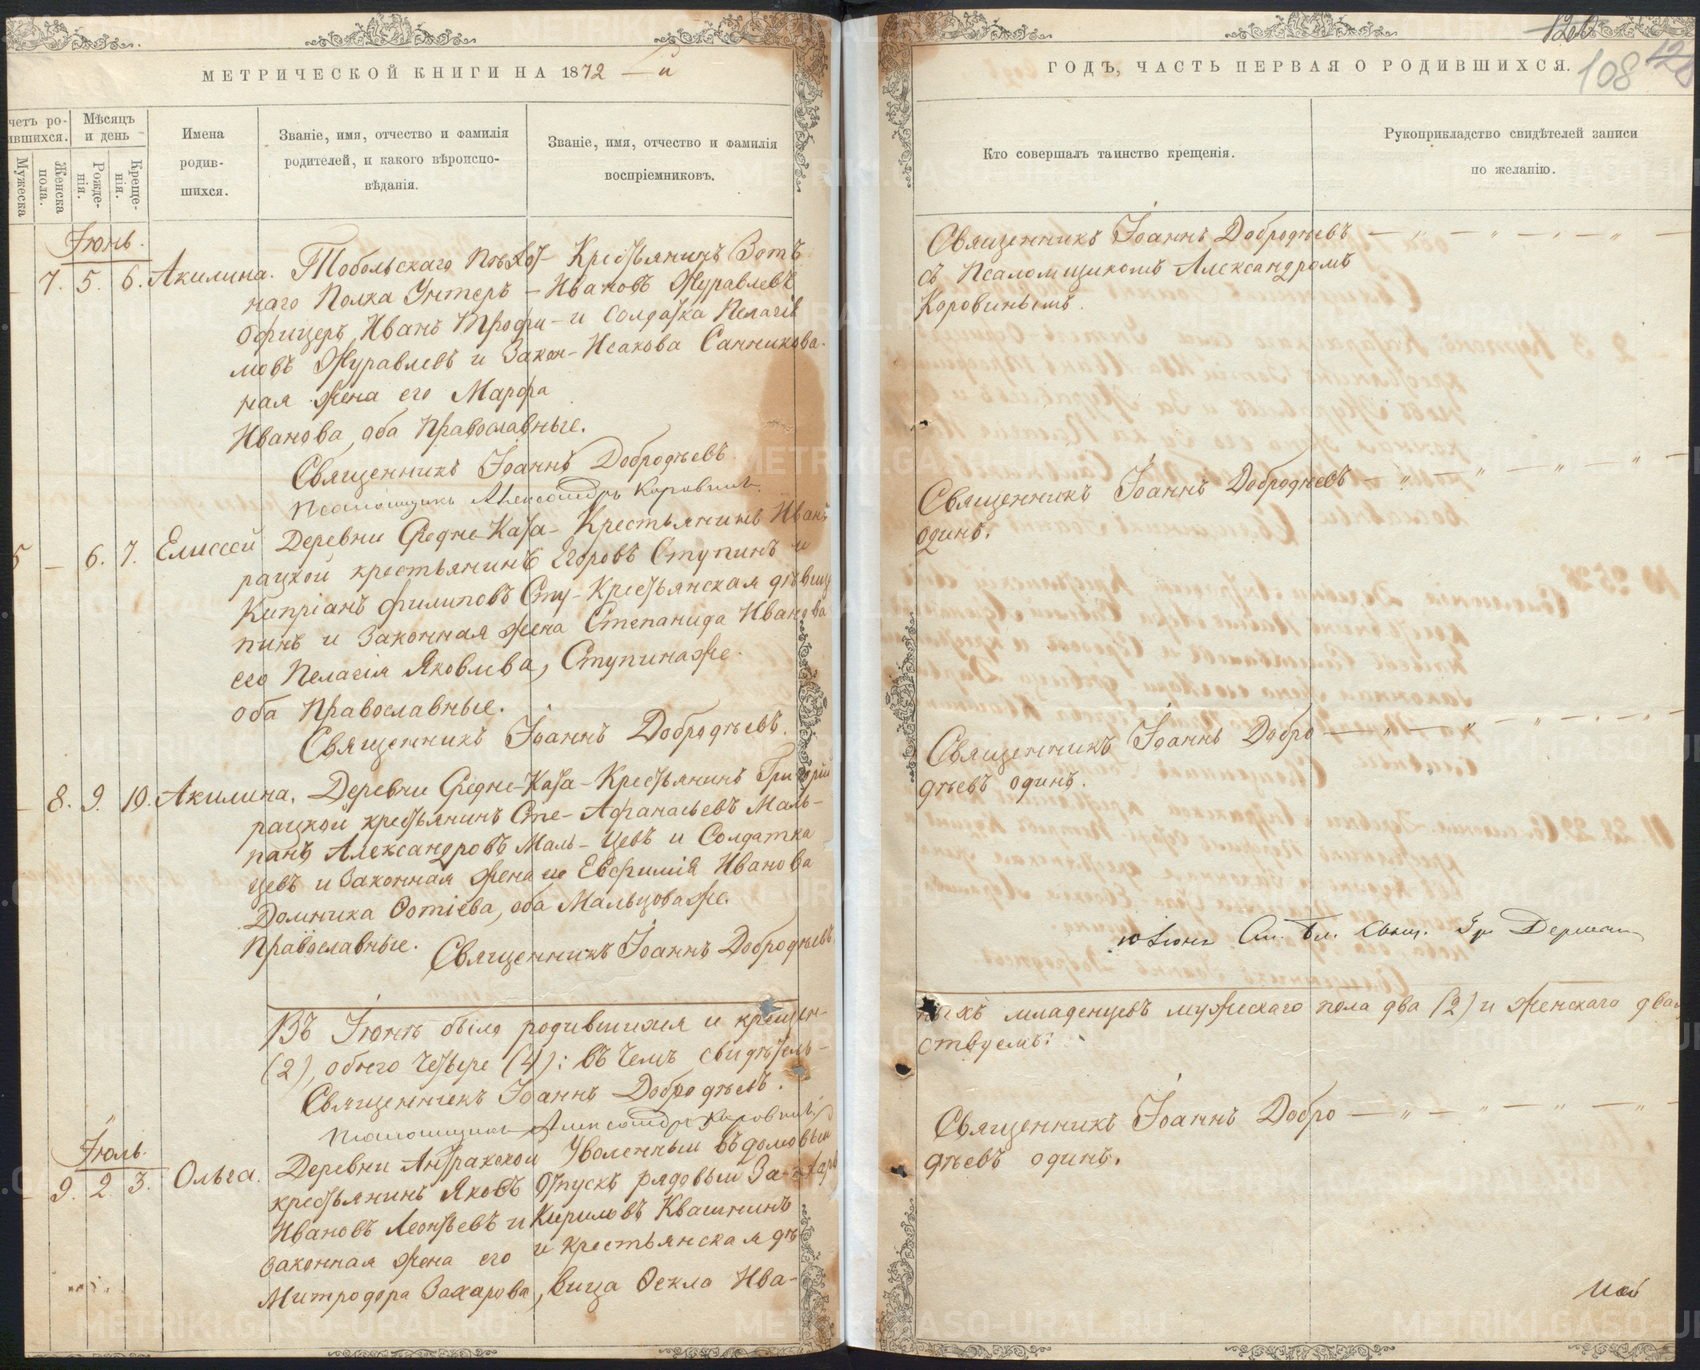 МЕТРИЧЕСКОЙ КНИГИ НА 1872 — й
четъ ро-
ившихся.
Мѣсяцъ
и день
Мужеска
Женска
пола.
Рожде-
нія.
Креще-
нія.
Имена
родив-
шихся.
Званіе, имя, отчество и фамилія
родителей, и какого вѣроиспо-
вѣданія.
Званіе, имя, отчество и фамилія
воспріемниковъ.
Іюнь.
7. 5. 6. Акилина.
Тобольскаго Пѣхот-
наго Полка Унтеръ-
офицеръ Иванъ Трофи-
мовъ Журавлевъ и Закон-
ная жена его Марфа
Иванова, оба Православные.
Крестьянинъ Зотъ
Ивановъ Журавлевъ
и Солдатка Пелагія
Исакова Санникова.
Священникъ Іоаннъ Добродѣевъ
Псаломщикъ Александръ Коровинъ.
5 — 6. 7. Елиссей
Деревни Средне-Ката-
рацкой крестьянинъ
Кипріанъ Филиповъ Сту-
пинъ и Законная жена
его Пелагія Яковлева,
оба Православные.
Крестьянинъ Иванъ
Егоровъ Ступинъ и
Крестьянская дѣвица
Степанида Иванова
Ступинаже.
Священникъ Іоаннъ Добродѣевъ.
8. 9. 10. Акилина.
Деревни Средне-Ката-
рацкой крестьянинъ Сте-
панъ Александровъ Маль-
цевъ и Законная жена его
Домника Фотіева, оба
Православные.
Крестьянинъ Григорій
Афанасьевъ Маль-
цевъ и Солдатка
Евфимія Иванова
Мальцоваже.
Священникъ Іоаннъ Добродѣевъ
Въ Іюнѣ было родившихся и крещен-
(2), обоего четыре (4): въ чемъ свидѣтель-
Священникъ Іоаннъ Добродѣевъ.
Псаломщикъ Александръ Коровинъ
Іюль.
9. 2. 3. Ольга.
Деревни
крестьянинъ Яковъ
Ивановъ Леонтьевъ и
законная жена его
Митродора Захарова,
Уволенный въ домовый
отпускъ рядовый За-
Кириловъ Квашнинъ
и Крестьянская дѣ-
вица Фекла Ива-
ГОДЪ, ЧАСТЬ ПЕРВАЯ О РОДИВШИХСЯ.
108
Кто совершалъ таинство крещенія.
Рукоприкладство свидѣтелей записи
по желанію.
Священникъ Іоаннъ Добродѣевъ
съ Псаломщикомъ Александромъ
Коровинымъ.
Священникъ Іоаннъ Добродѣевъ
одинъ.
Священникъ Іоаннъ Добро
дѣевъ одинъ.
ныхъ младенцевъ мужескаго пола два (2) и женскаго два
ствуемъ:
Священникъ Іоаннъ Добро
дѣевъ одинъ.
METRIKI.GASO-URAL.RU
METRIKI.GASO-URAL.RU